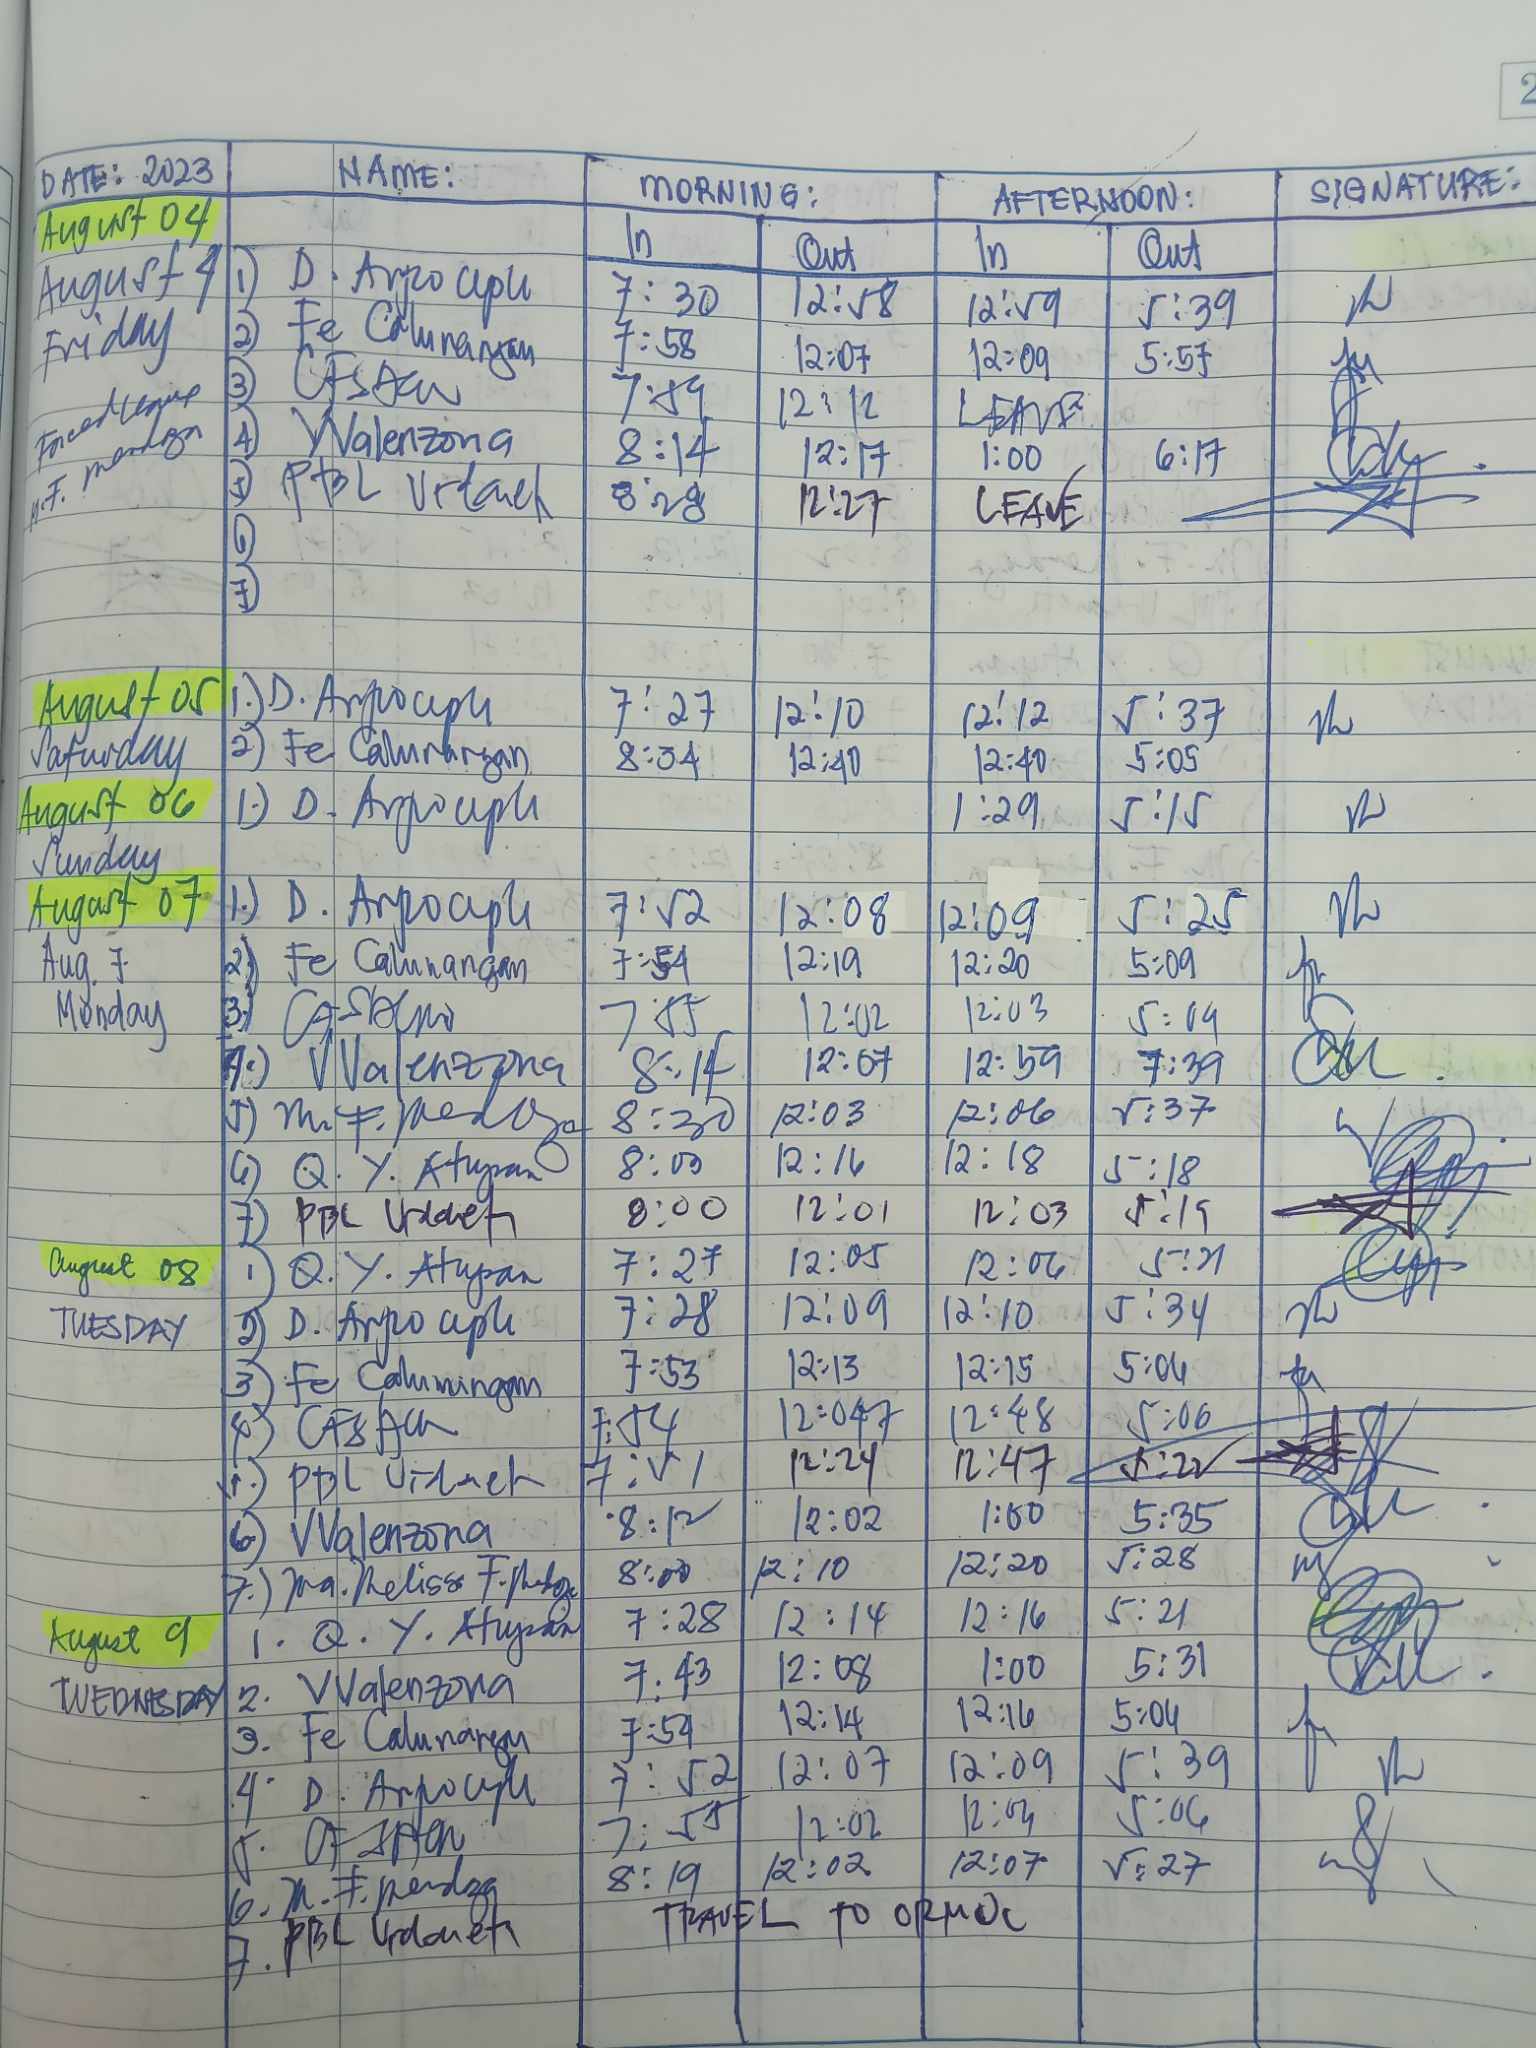 2
DATE: 2023 NAME: MORNING: AFTERNOON: SIGNATURE:
August 04 In Out In Out
August 4 1) D. 7:30 12:58 12:59 5:39
Friday 2) Fe Calunangan 7:58 12:07 12:09 5:57
Forced leave 3) 7:59 12:12 LEAVE
M.F. Mendoza 4) VValenzona 8:14 12:17 1:00 6:17
5) PBL Urdaneta 8:28 12:27 LEAVE
6)
7)
August 05 1.) D. 7:27 12:10 12:12 5:37
Saturday 2) Fe Calunangan 8:34 12:40 12:40 5:05
August 06 1.) D. 1:29 5:15
Sunday
August 07 1.) D. 7:52 12:08 12:09 5:25
Aug. 7 2) Fe Calunangan 7:54 12:19 12:20 5:09
Monday 3.) 7:55 12:02 12:03 5:04
4.) VValenzona 8:14 12:07 12:59 7:39
5) M. F. Mendoza 8:30 12:03 12:06 5:37
6) Q. Y. Atupan 8:00 12:16 12:18 5:18
7) PBL Urdaneta 8:00 12:01 12:03 5:19
August 08 1) Q. Y. Atupan 7:27 12:05 12:06 5:21
TUESDAY 2) D. 7:28 12:09 12:10 5:34
3) Fe Calunangan 7:53 12:13 12:15 5:06
4) 7:54 12:047 12:48 5:06
5.) PBL Urdaneta 7:51 12:24 12:47 5:22
6) VValenzona 8:12 12:02 1:00 5:35
7.) Ma. Melissa F. 8:00 12:10 12:20 5:28
August 9 1. Q. Y. Atupan 7:28 12:14 12:16 5:21
WEDNESDAY 2. VValenzona 7:43 12:08 1:00 5:31
3. Fe Calunangan 7:54 12:14 12:16 5:06
4. D. 7:52 12:07 12:09 5:39
5. 7:55 12:02 12:04 5:06
6. M. F. Mendoza 8:19 12:02 12:07 5:27
7. PBL Urdaneta TRAVEL TO ORMOC